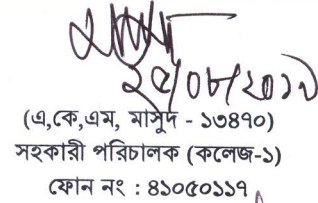 ২৫/০৮/২০১৯
(এ,কে,এম, মাসুদ - ১৩৪৭০)
সহকারী পরিচালক (কলেজ-১)
ফোন নং : ৪১০৫০১১৭